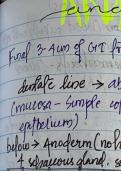 Final 3-4 cm of GIT
dentate line →
(mucosa - Simple
epithelium)
below → Anoderm (no h
& sebaceous gland.